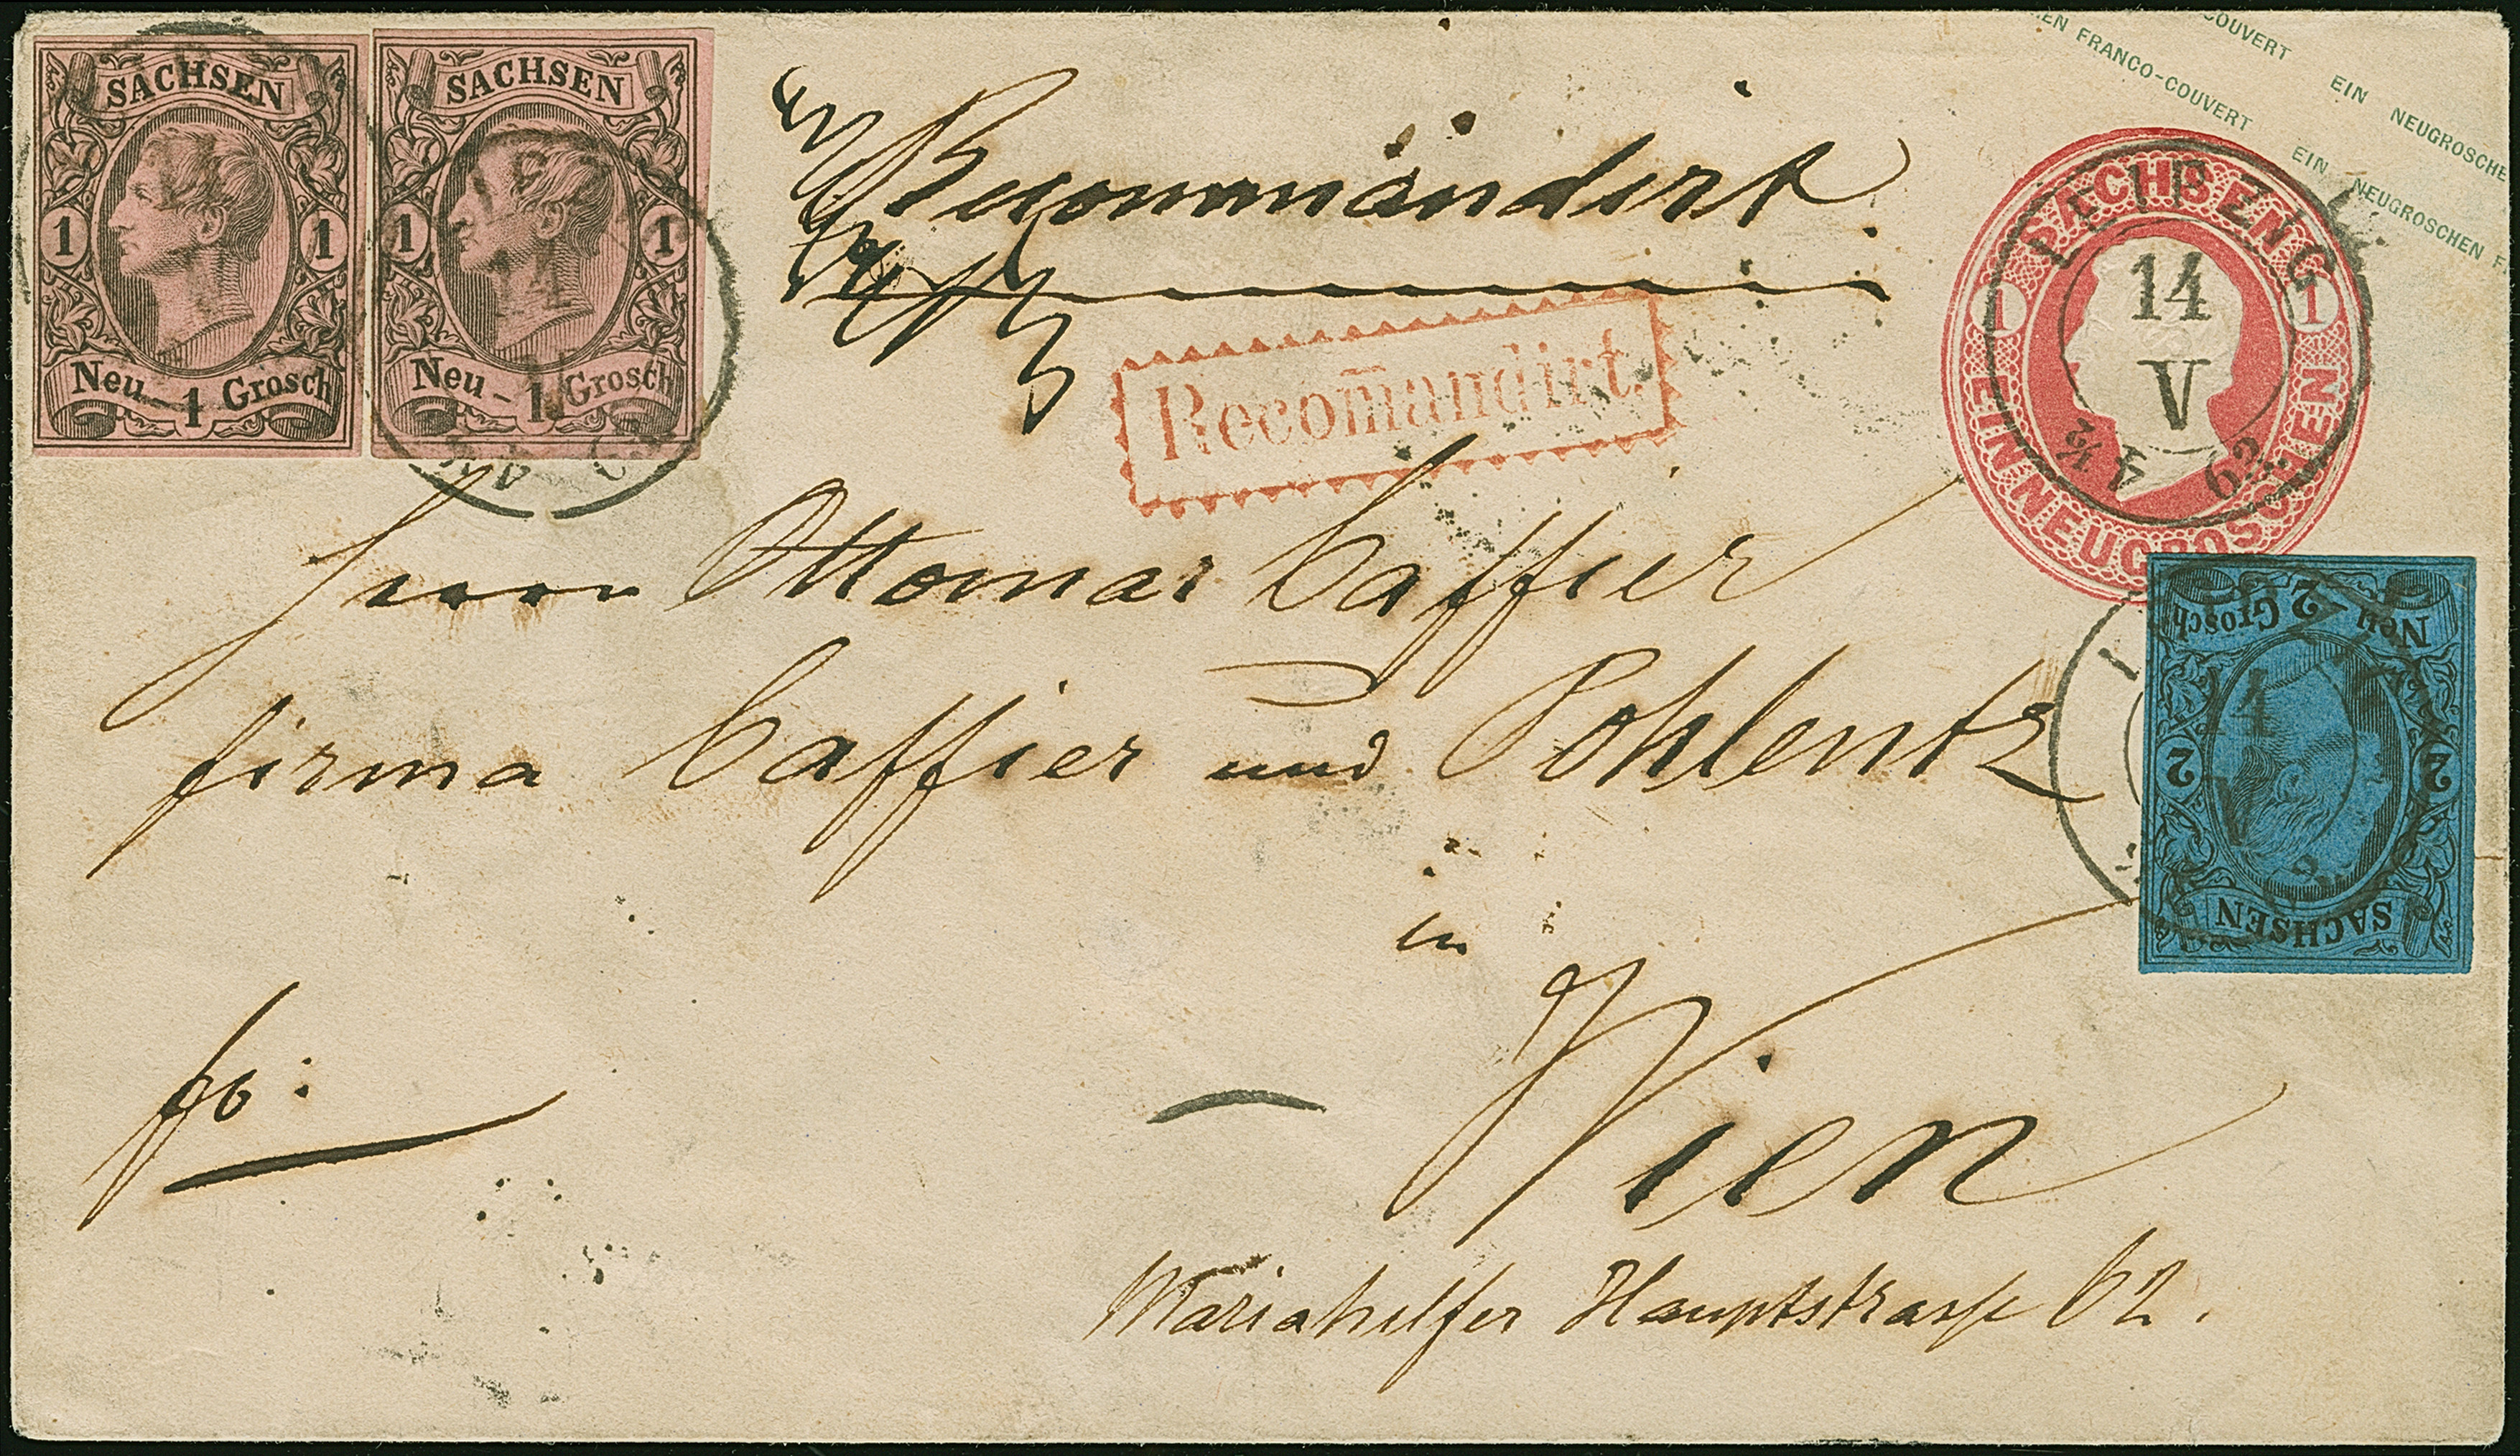 COUVERT EIN NEUGROSCHE
EN FRANCO-COUVERT EIN NEUGROSCHEN F
SACHSEN
1 1
Neu-1 Grosch
SACHSEN
1 1
Neu-1 Grosch
Recommandirt
Recom̅andirt.
SACHSEN
1 1
EIN NEUGROSCHEN
LEIPZIG
14
V
62
Herrn Ottomar Caffier
firma Caffier und Pohlentz
in
Wien
Mariahilfer Hauptstrasse 62.
fo:
SACHSEN
2 2
Neu-2 Grosch
14
V